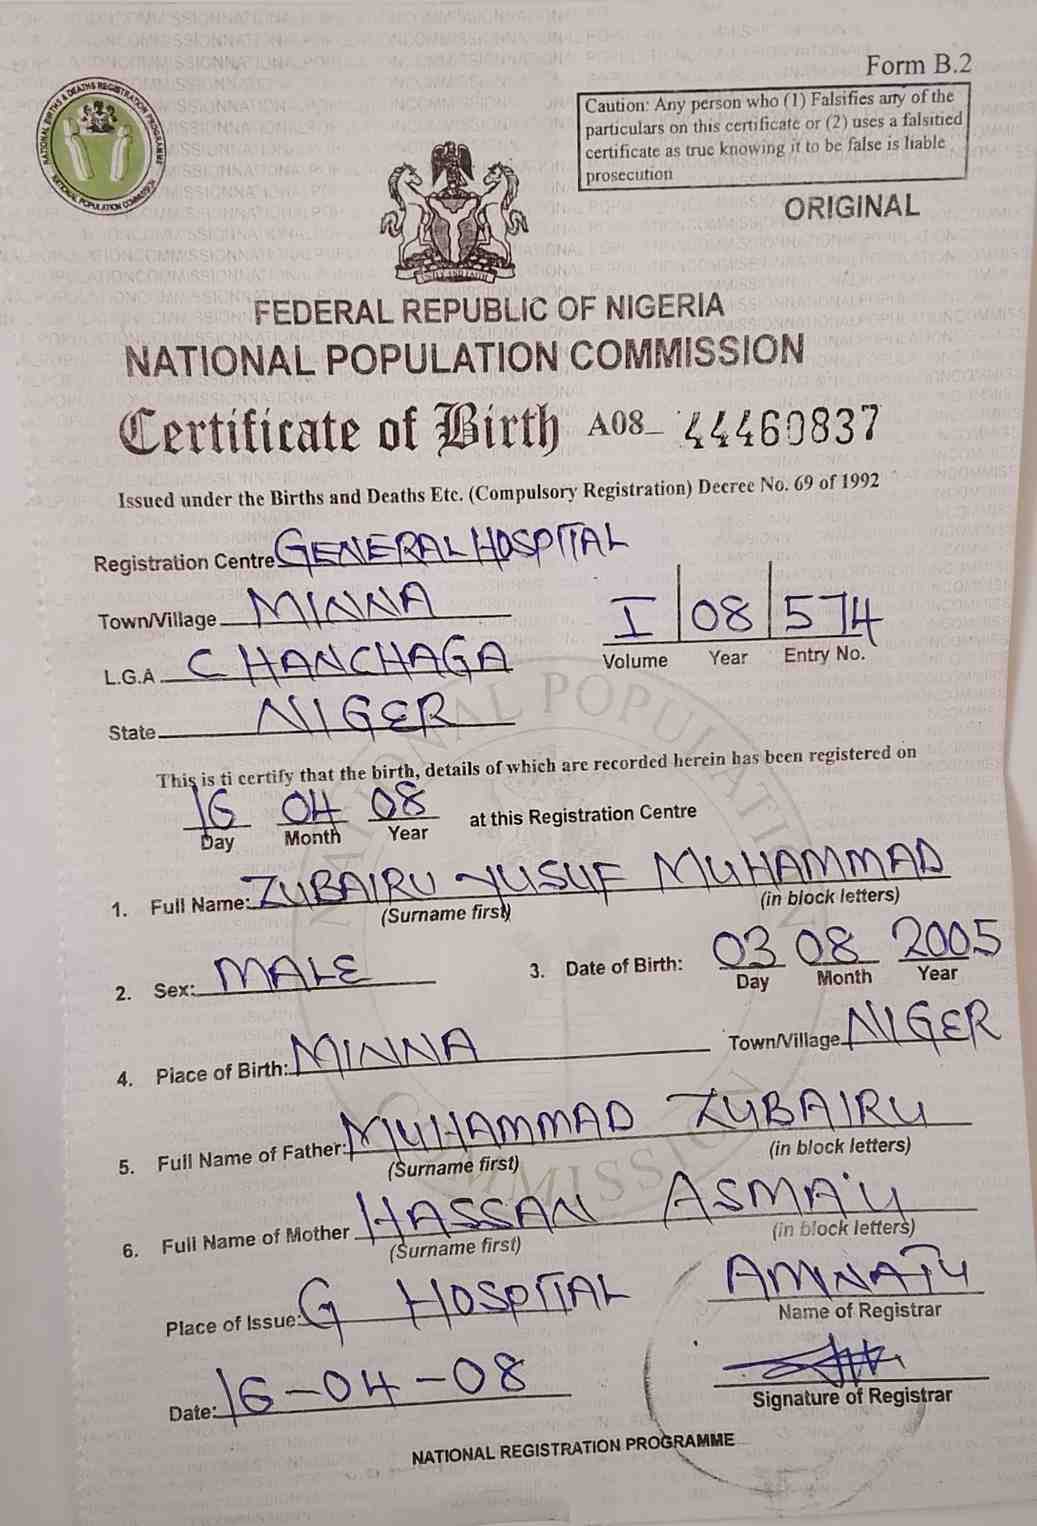 Form B.2
NATIONAL BIRTHS & DEATHS REGISTRATION PROGRAMME
NATIONAL POPULATION COMMISSION
Caution: Any person who (1) Falsifies any of the
particulars on this certificate or (2) uses a falsitied
certificate as true knowing it to be false is liable
prosecution
ORIGINAL
FEDERAL REPUBLIC OF NIGERIA
NATIONAL POPULATION COMMISSION
Certificate of Birth A08_ 44460837
Issued under the Births and Deaths Etc. (Compulsory Registration) Decree No. 69 of 1992
Registration Centre GENERAL HOSPITAL
Town/Village MINNA
I 08 574
Volume Year Entry No.
L.G.A CHANCHAGA
State NIGER
This is ti certify that the birth, details of which are recorded herein has been registered on
16 04 08 at this Registration Centre
Day Month Year
1. Full Name: ZUBAIRU YUSUF MUHAMMAD
(Surname first) (in block letters)
2. Sex: MALE 3. Date of Birth: 03 08 2005
Day Month Year
4. Place of Birth: MINNA Town/Village NIGER
5. Full Name of Father: MUHAMMAD ZUBAIRU
(Surname first) (in block letters)
6. Full Name of Mother HASSAN ASMA'U
(Surname first) (in block letters)
Place of Issue: G HOSPITAL AMINATU
Name of Registrar
Date: 16-04-08
Signature of Registrar
NATIONAL REGISTRATION PROGRAMME
NATIONAL POPULATION COMMISSION